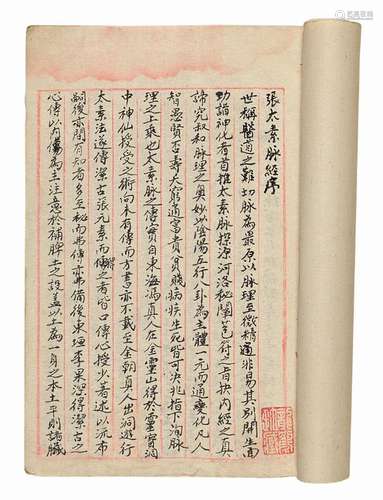 張太素脉經序
世稱醫道之難切脉為最原以脉理至微精通非易其別開生面
功詣神化者首推太素脉探源河洛秘闡苞符之旨抉內經之真
諦究叔和脉理之奧妙以陰陽五行八卦為主體一元而通變化凡人
智愚賢否壽夭窮通富貴貧賤病疾生死皆可決兆指下洵脉
理之上乘也太素脉之傳實自東海馮真人在全靈山得於靈寶洞
中神仙授受之術向未有傳而方書亦不載至金朝真人出洞遊行
太素法遂傳潔古張元素而得之者皆口傳心授少著述以流布
嗣後亦間有知者多至秘而弗傳亦弗備後東垣李杲深得潔古之
心傳以內傷為主注意於補脾土之說盖以土為一身之本土平則諸臟